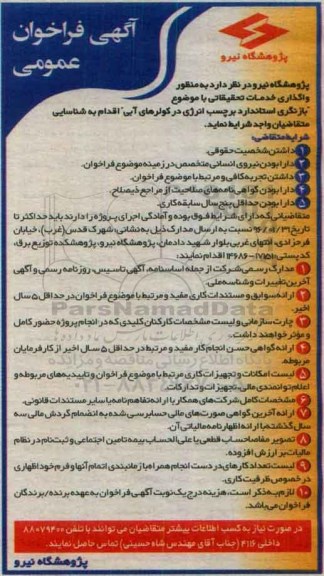 پژوهشگاه نیرو
آگهی فراخوان
عمومی
پژوهشگاه نیرو در نظر دارد به منظور
واگذاری خدمات تحقیقاتی با موضوع
"بازنگری استاندارد برچسب انرژی در کولرهای آبی" اقدام به شناسایی
متقاضیان واجد شرایط نماید.
شرایط متقاضی:
۱ داشتن شخصیت حقوقی.
۲ دارا بودن نیروی انسانی متخصص در زمینه موضوع فراخوان.
۳ داشتن تجربه کافی و مرتبط با موضوع فراخوان.
۴ دارا بودن گواهی‌نامه‌های صلاحیت از مراجع ذیصلاح
۵ دارا بودن حداقل پنج سال سابقه کاری.
متقاضیانی که دارای شرایط فوق بوده و آمادگی اجرای پروژه را دارند باید حداکثر تا
تاریخ ۹۶/۰۱/۳۱ نسبت به ارسال مدارک ذیل به نشانی: شهرک قدس (غرب)، خیابان
فرحزادی، انتهای غربی بلوار شهید دادمان، پژوهشگاه نیرو، پژوهشکده توزیع برق،
کدپستی: ۱۷۱۵۱-۱۴۶۸۶ اقدام نمایند:
۱ مدارک رسمی شرکت از جمله اساسنامه، آگهی تاسیس، روزنامه رسمی و آگهی
آخرین تغییرات و شناسه ملی.
۲ ارائه سوابق و مستندات کاری مفید و مرتبط با موضوع فراخوان در حداقل ۵ سال
اخیر.
۳ چارت سازمانی و لیست مشخصات کارکنان کلیدی که در انجام پروژه حضور کامل
و مؤثر خواهند داشت.
۴ ارائه گواهی حسن انجام کار مفید و مرتبط در حداقل ۵ سال اخیر از کارفرمایان
مربوطه.
۵ لیست امکانات و تجهیزات کاری مرتبط با موضوع فراخوان و تاییدیه‌های مربوطه و
اعلام توانمندی مالی، تجهیزات و تدارکات.
۶ مشخصات کامل شرکت‌های همکار یا ارائه تفاهم‌نامه یا سایر مستندات قانونی.
۷ ارائه آخرین گواهی صورت‌های مالی حسابرسی شده به انضمام گردش مالی سه
سال گذشته با ارائه اظهارنامه مالیاتی آن.
۸ تصویر مفاصاحساب قطعی یا علی الحساب بیمه تامین اجتماعی و ثبت‌نام در نظام
مالیات بر ارزش افزوده.
۹ لیست تعداد کارهای در دست انجام همراه با زمانبندی اتمام آنها و فرم خوداظهاری
در خصوص ظرفیت کاری.
۱۰ لازم به ذکر است، هزینه درج یک نوبت آگهی فراخوان به عهده برنده / برندگان
فراخوان می‌باشد.
ParsNamadData
در صورت نیاز به کسب اطلاعات بیشتر متقاضیان می توانند با تلفن ۸۸۰۷۹۴۰۰
داخلی ۴۱۱۶ (جناب آقای مهندس شاه حسینی) تماس حاصل نمایند.
پژوهشگاه نیرو